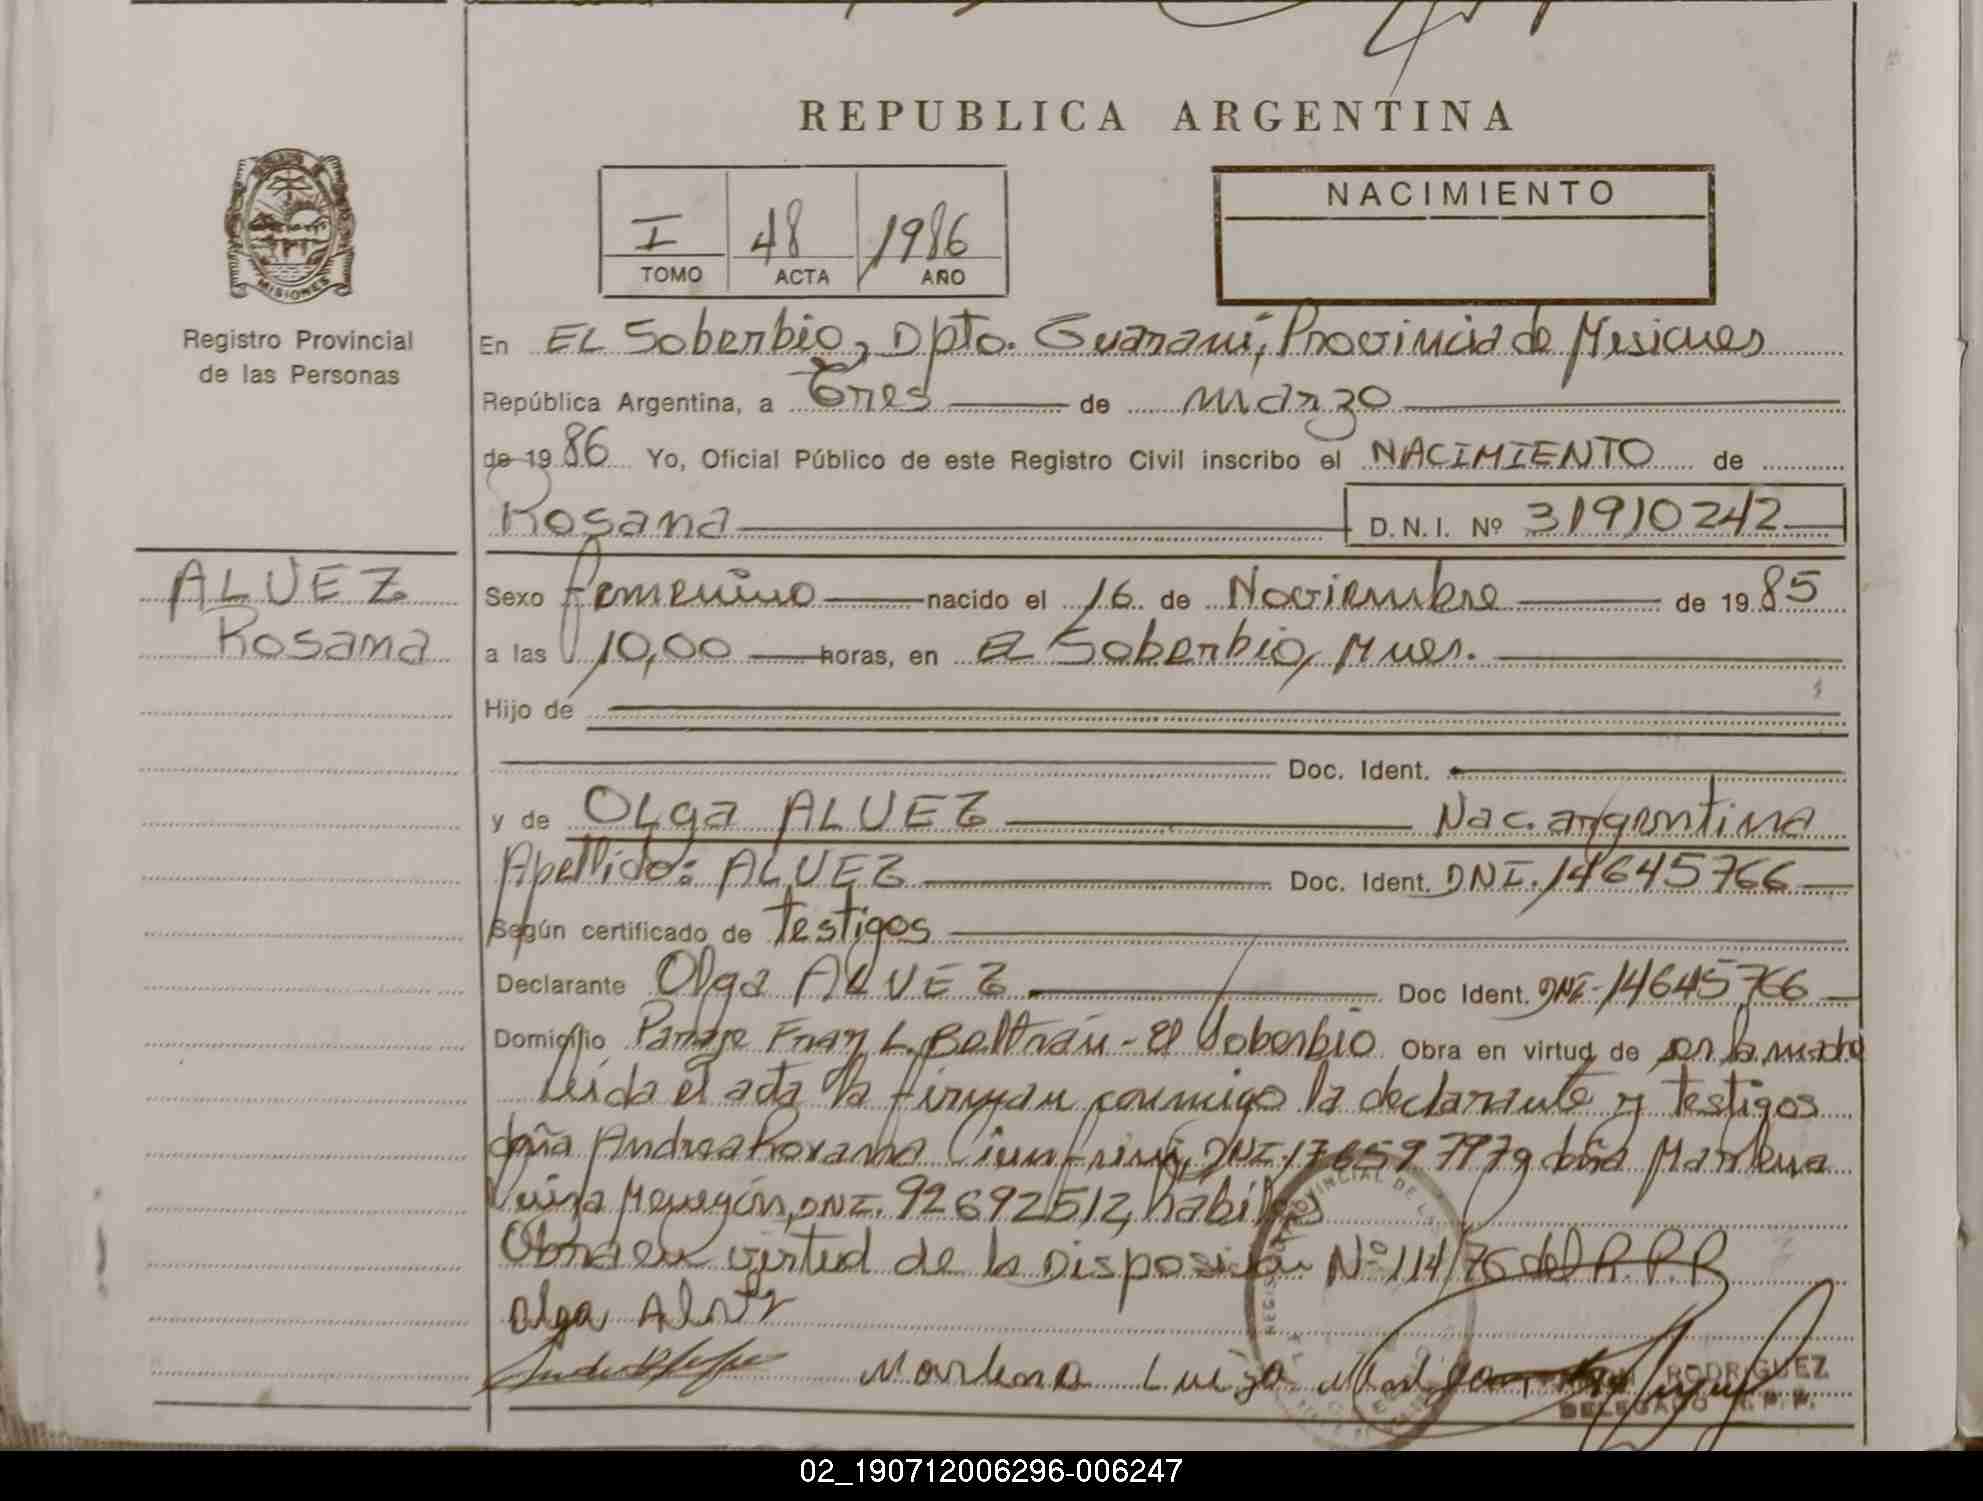 REPUBLICA ARGENTINA
MISIONES
Registro Provincial
de las Personas
I 48 1986
TOMO ACTA AÑO
NACIMIENTO
En EL Soberbio, Dpto. Guaraní, Provincia de Misiones
República Argentina, a Tres de marzo
de 1986 Yo, Oficial Público de este Registro Civil inscribo el NACIMIENTO de
Rosana D.N.I. Nº 31910242
ALVEZ
Rosana
Sexo femenino nacido el 16 de Noviembre de 1985
a las 10,00 horas, en El Soberbio, Mnes.
Hijo de
Doc. Ident.
y de OLga ALVEZ Nac. argentina
Apellido: ALVEZ Doc. Ident. DNI. 14645766
Según certificado de Testigos
Declarante Olga ALVEZ Doc Ident. DNI-14645766
Domicilio Paraje Fray L. Beltrán - El Soberbio Obra en virtud de ser la madre
Leída el acta la firman conmigo la declarante y testigos
doña Andrea Roxana DNI. doña Marlena
Luiza DNI. 92692512, hábiles
Obra en virtud de la Disposición Nº 114/76 del R.P.P
Olga Alvez
Marlena Luiza
RODRIGUEZ
DELEGADO R.P.P.
02_190712006296-006247